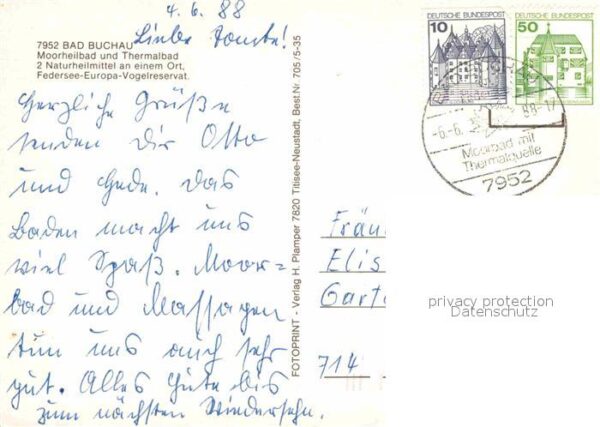 4.6.88
7952 BAD BUCHAU
Moorheilbad und Thermalbad
2 Naturheilmittel an einem Ort,
Federsee-Europa-Vogelreservat.
Liebe Tante!
Herzliche Grüße
senden Dir Otto
und Hede. Das
Baden macht uns
viel Spaß. Moor=
bad und Massagen
tun uns auch sehr
gut. Alles Gute bis
zum nächsten Wiedersehn.
FOTOPRINT - Verlag H. Plamper 7820 Titisee-Neustadt, Best.Nr. 705/5-35
DEUTSCHE BUNDESPOST
10
DEUTSCHE BUNDESPOST
50
-6.-6. 88-17
Moorbad mit
Thermalquelle
7952
Fräu
Elis
Garte
714
privacy protection
Datenschutz